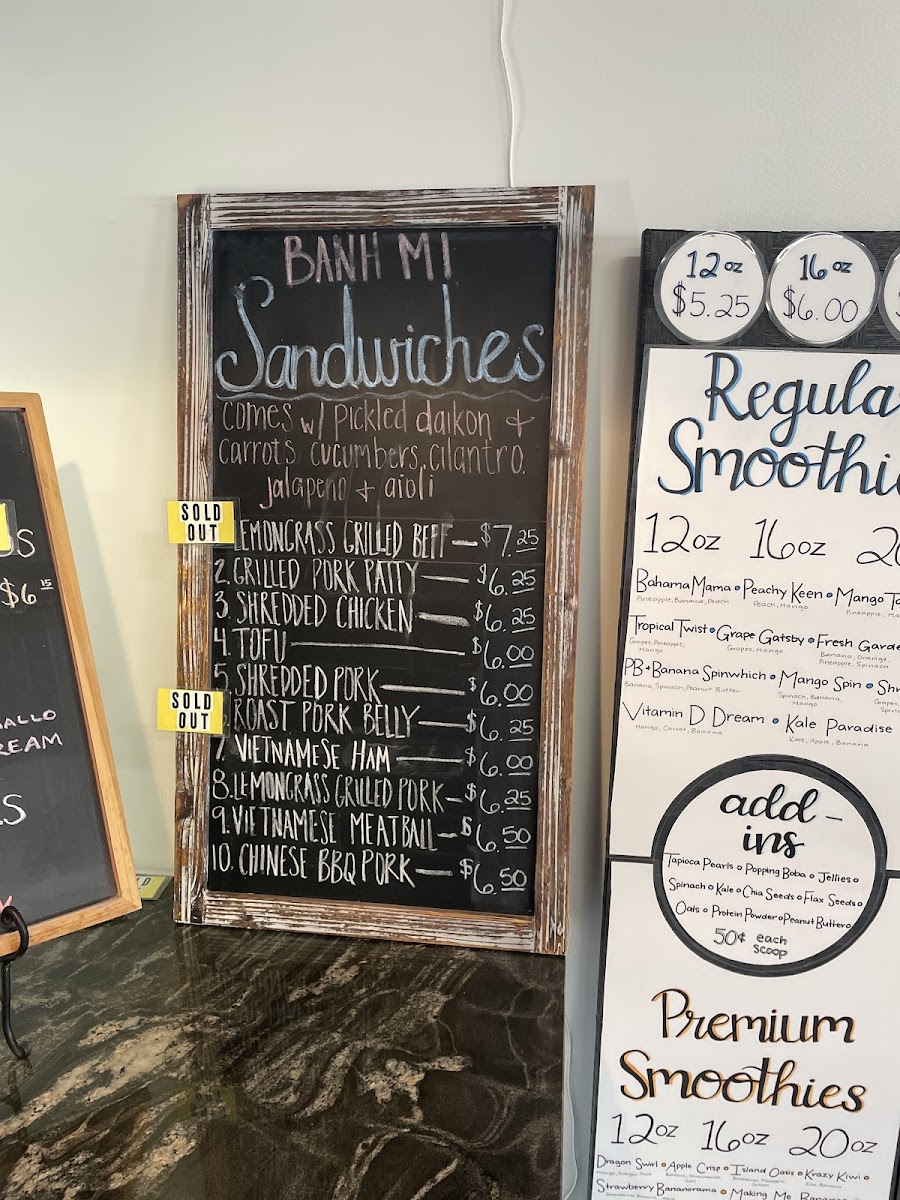 S
$6 15
ALLO
REAM
S
BANH MI
Sandwiches
comes w/ pickled daikon +
carrots, cucumbers, cilantro,
jalapeño + aioli
SOLD
OUT
LEMONGRASS GRILLED BEEF — $7.25
2. GRILLED PORK PATTY — $6.25
3. SHREDDED CHICKEN — $6.25
4. TOFU — $6.00
5. SHREDDED PORK — $6.00
SOLD
OUT
ROAST PORK BELLY — $6.25
7. VIETNAMESE HAM — $6.00
8. LEMONGRASS GRILLED PORK — $6.25
9. VIETNAMESE MEATBALL — $6.50
10. CHINESE BBQ PORK — $6.50
12 oz
$5.25
16 oz
$6.00
Regula
Smoothi
12oz 16oz 2
Bahama Mama • Peachy Keen • Mango Ta
Pineapple, Banana, Peach Peach, Mango Pineapple, Ma
Tropical Twist • Grape Gatsby • Fresh Garde
Grapes, Pineapple, Mango Grapes, Mango Banana, Orange, Pineapple, Spinach
PB+Banana Spinwhich • Mango Spin • Shr
Banana, Spinach, Peanut Butter Spinach, Banana, Mango Grapes,
Vitamin D Dream • Kale Paradise
Mango, Carrot, Banana Kale, Apple, Banana
add-
ins
Tapioca Pearls • Popping Boba • Jellies •
Spinach • Kale • Chia Seeds • Flax Seeds •
Oats • Protein Powder • Peanut Butter •
50¢ each
scoop
Premium
Smoothies
12oz 16oz 20oz
Dragon Swirl • Apple Crisp • Island Oasis • Krazy Kiwi •
Strawberry Bananorama • Making Me Banana